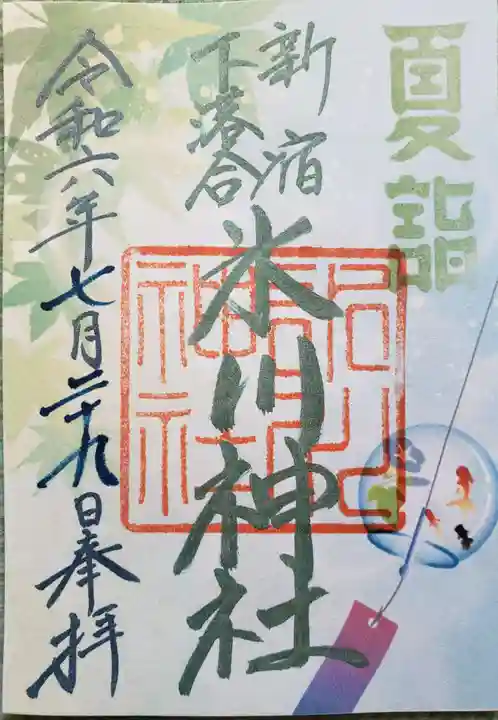 夏詣
新宿
下落合
氷川神社
令和六年七月二十九日奉拝